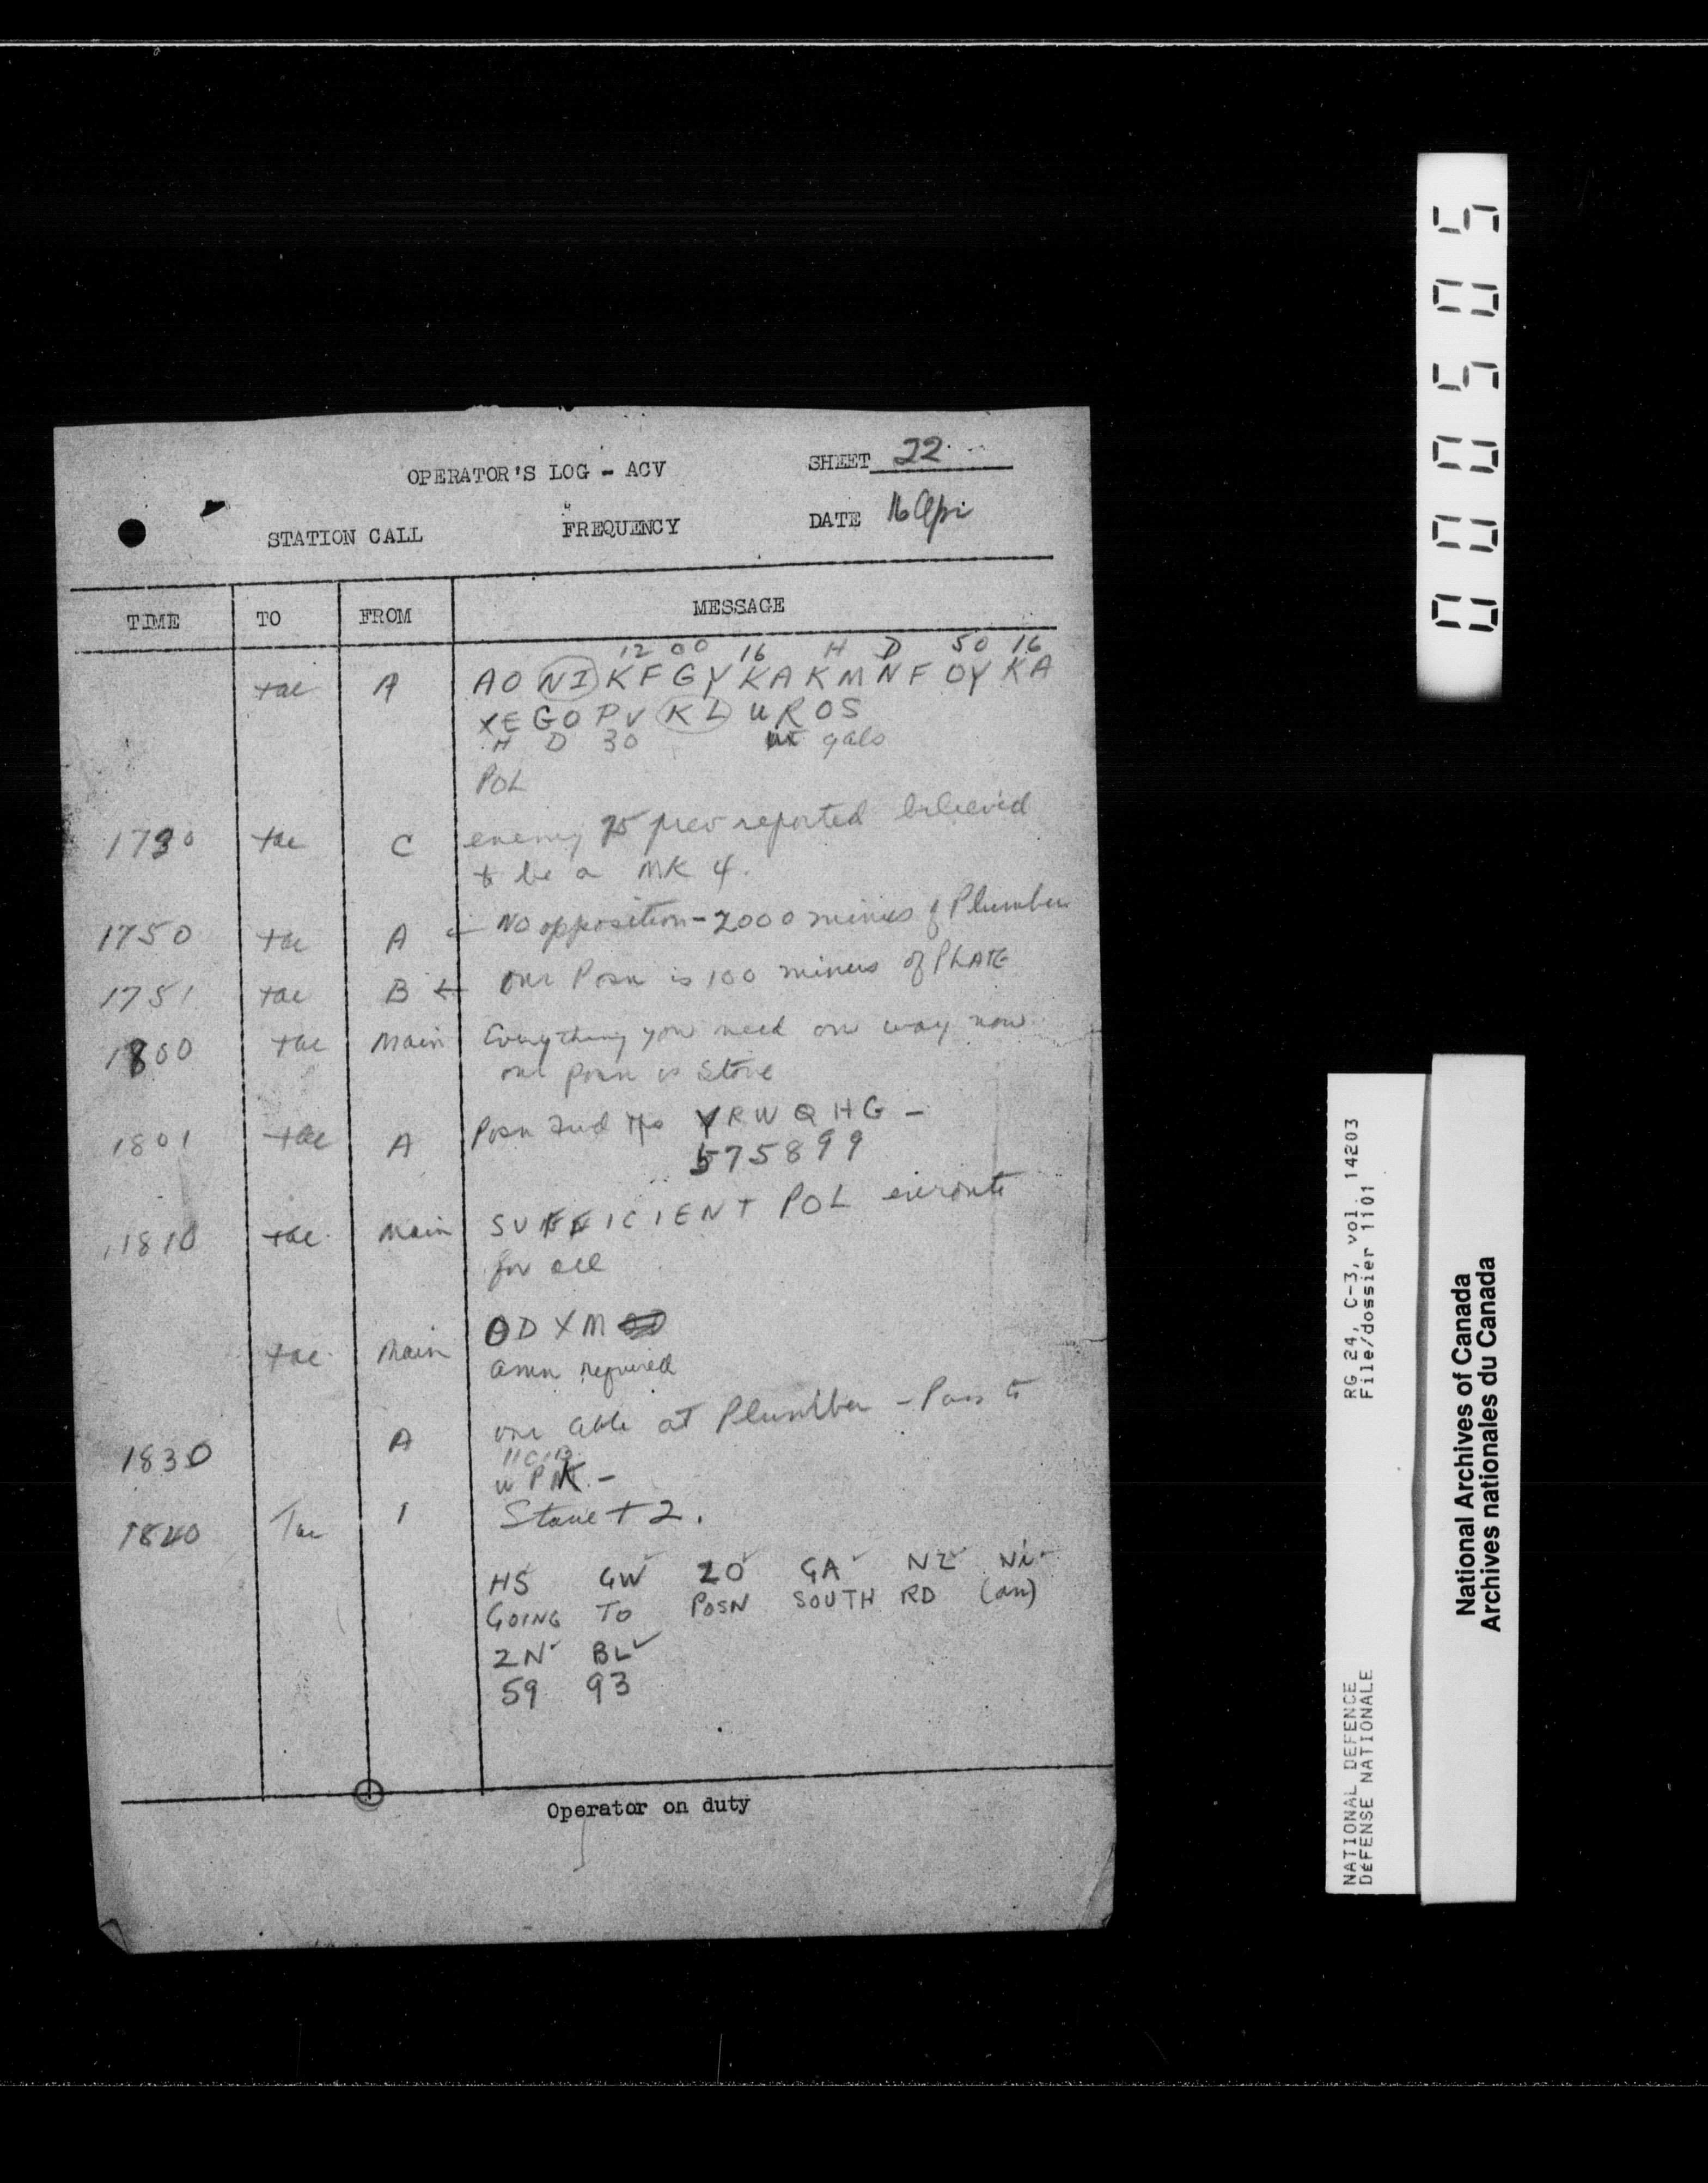 OPERATOR'S LOG - ACV
SHEET 22
STATION CALL
FREQUENCY
DATE 16 Apr
TIME TO FROM MESSAGE
12 00 16 H D 50 16
tac A AO NI KF GY KA KM NF OY KA
XE GO PV KL UR OS
H D 30 gals
POL
1730 tac C enemy 75 prev reported believed
to be a MK 4.
1750 tac A No opposition - 2000 minus of Plumber
1751 tac B our Posn is 100 minus of PLATE
1800 tac Main Everything you need on way now
our posn is Stove
1801 tac A Posn 2nd tps YRWQHG -
575899
1810 tac Main SUFFICIENT POL enroute
for all
ODXM
tac Main amn required
1830 A one able at Plumber - Pass to
1840 Tac 1 Stove + 2.
HS GW ZO GA NZ Ni
GOING TO POSN SOUTH RD (on)
ZN BL
59 93
Operator on duty
000505
RG 24, C-3, vol. 14203
File/dossier 1101
NATIONAL DEFENCE
DÉFENSE NATIONALE
National Archives of Canada
Archives nationales du Canada